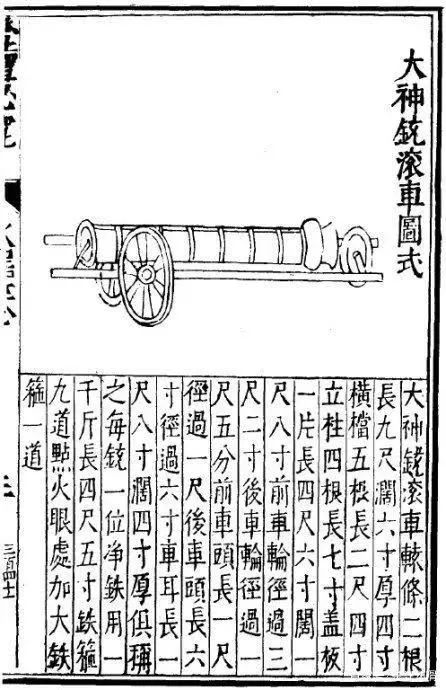 大神銃滾車圖式
大神銃滾車轅條二根
長九尺濶六寸厚四寸
橫檔五根長二尺四寸
立柱四根長七寸盖板
一片長四尺六寸闊一
尺八寸前車輪徑過三
尺二寸後車輪徑過一
尺五分前車頭長一尺
徑過一尺後車頭長六
寸徑過六寸車耳長一
尺八寸濶四寸厚俱稱
之每銃一位净鉄用一
千斤長四尺五寸鉄箍
九道點火眼處加大鉄
箍一道